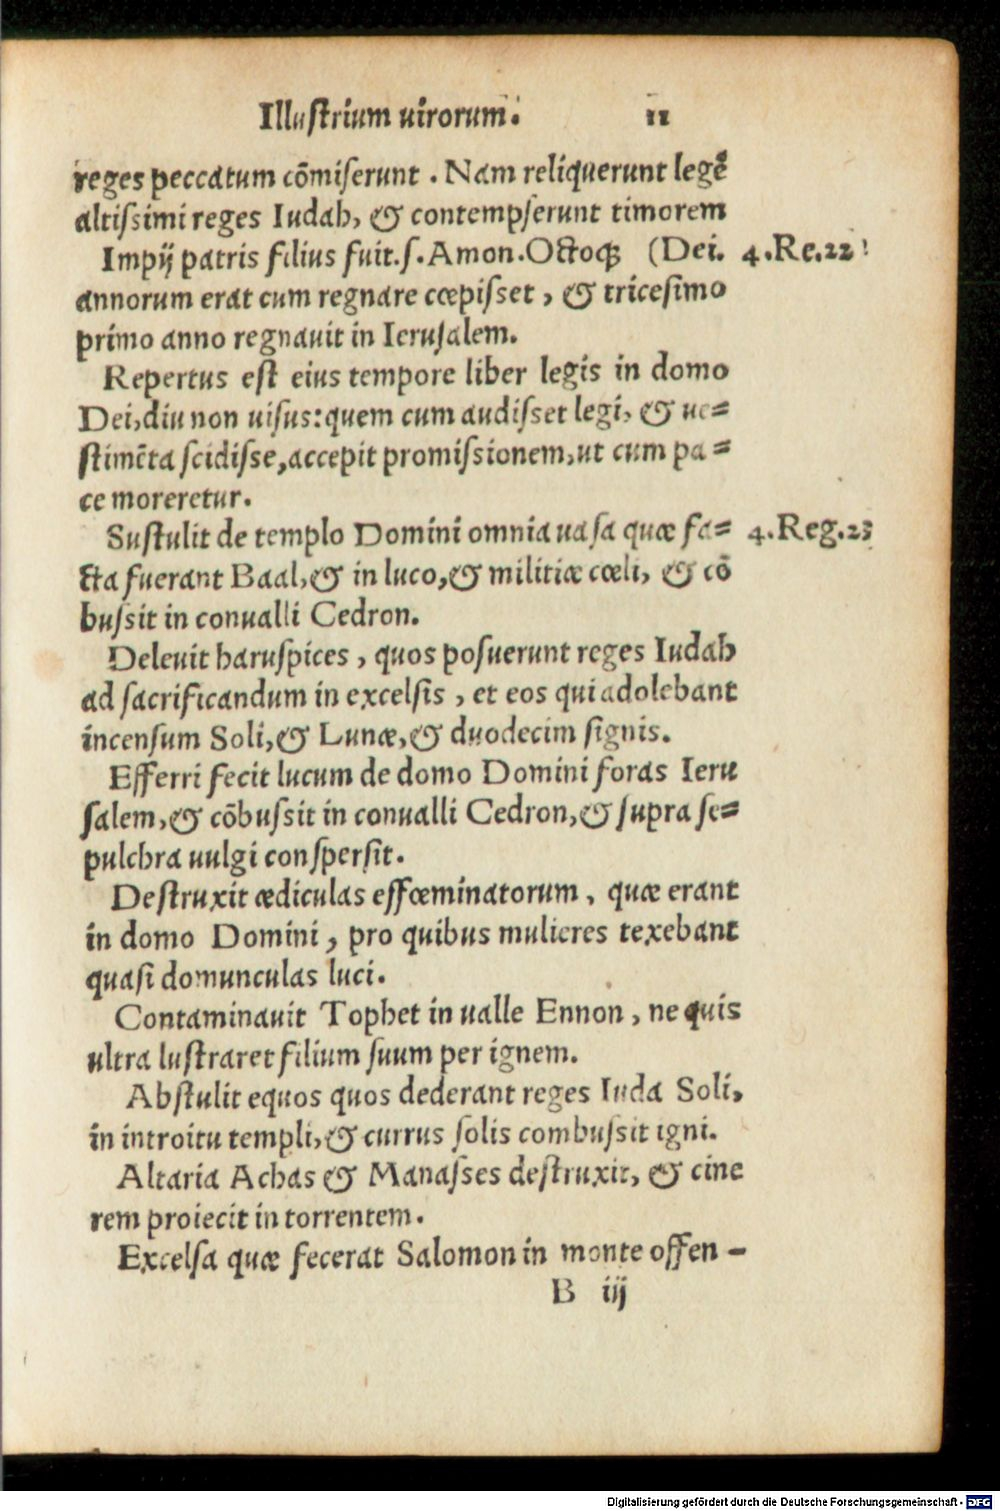 Illustrium uirorum. 11
reges peccatum cōmiserunt. Nam reliquerunt legē
altissimi reges Iudah, & contempserunt timorem
Impij patris filius fuit.s. Amon. Octoq; (Dei. 4.Re.22
annorum erat cum regnare cœpisset, & tricesimo
primo anno regnauit in Ierusalem.
Repertus est eius tempore liber legis in domo
Dei, diu non uisus: quem cum audisset legi, & ue=
stimēta scidisse, accepit promissionem, ut cum pa=
ce moreretur.
Sustulit de templo Domini omnia uasa quæ fa= 4.Reg.23
cta fuerant Baal, & in luco, & militiæ cœli, & cō
bussit in conualli Cedron.
Deleuit haruspices, quos posuerunt reges Iudah
ad sacrificandum in excelsis, et eos qui adolebant
incensum Soli, & Lunæ, & duodecim signis.
Efferri fecit lucum de domo Domini foras Ieru
salem, & cōbussit in conualli Cedron, & supra se=
pulchra uulgi conspersit.
Destruxit ædiculas effœminatorum, quæ erant
in domo Domini, pro quibus mulieres texebant
quasi domunculas luci.
Contaminauit Tophet in ualle Ennon, ne quis
ultra lustraret filium suum per ignem.
Abstulit equos quos dederant reges Iuda Soli,
in introitu templi, & currus solis combussit igni.
Altaria Achas & Manasses destruxit, & cine
rem proiecit in torrentem.
Excelsa quæ fecerat Salomon in monte offen-
B iij
Digitalisierung gefördert durch die Deutsche Forschungsgemeinschaft - DFG